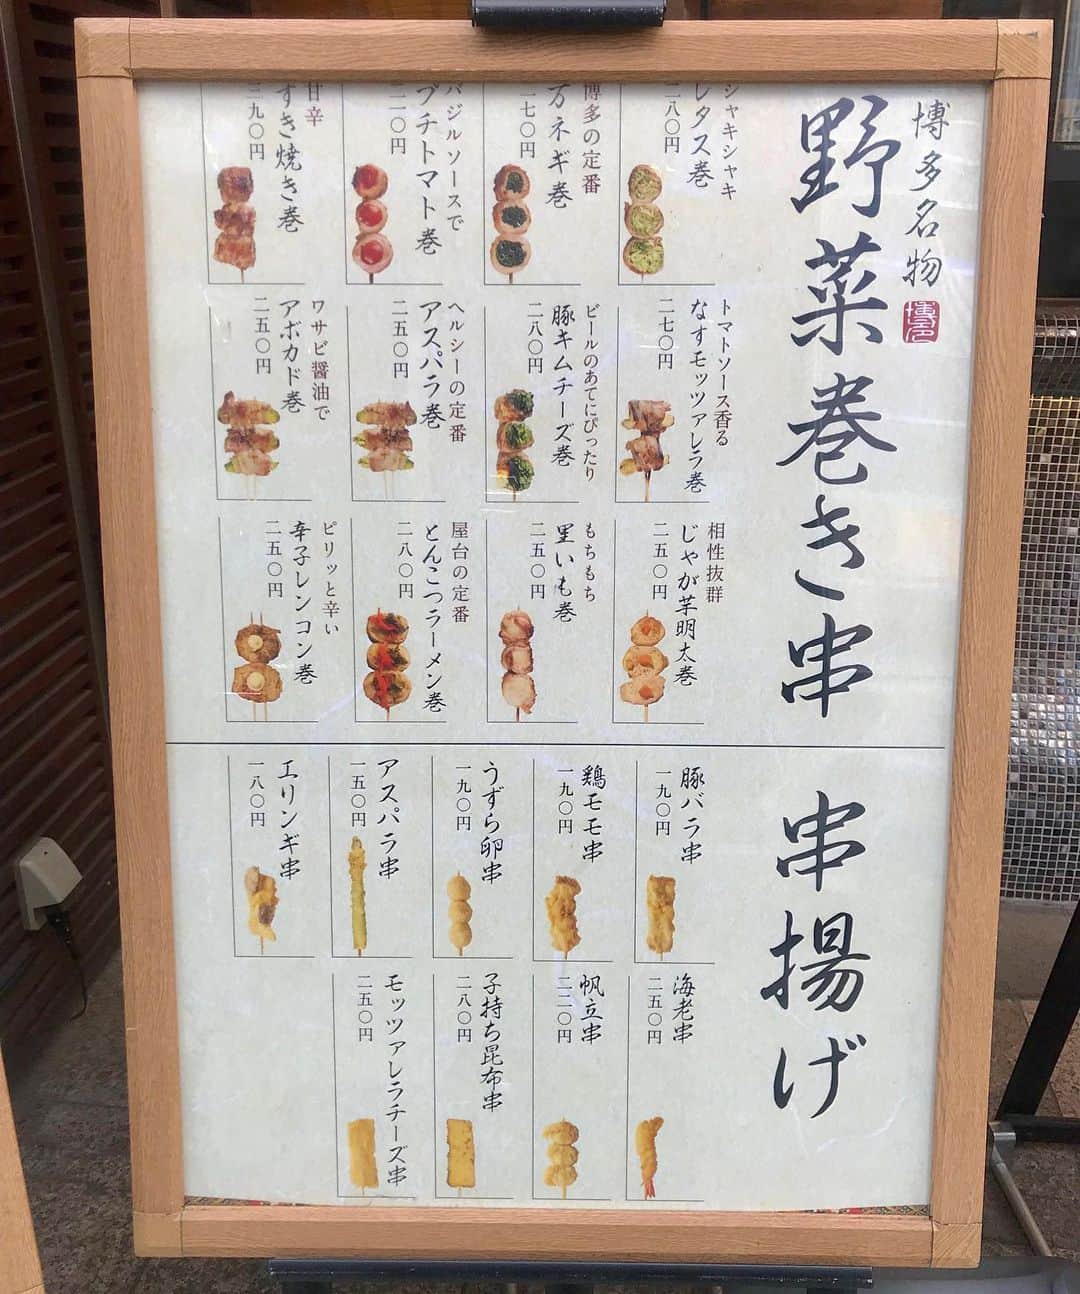 博多名物
博多
野菜巻き串
シャキシャキ
レタス巻
二八〇円
博多の定番
万ネギ巻
一七〇円
バジルソースで
プチトマト巻
二一〇円
甘辛
すき焼き巻
二九〇円
トマトソース香る
なすモッツァレラ巻
二七〇円
ビールのあてにぴったり
豚キムチーズ巻
二八〇円
ヘルシーの定番
アスパラ巻
二五〇円
ワサビ醤油で
アボカド巻
二五〇円
相性抜群
じゃが芋明太巻
二五〇円
もちもち
里いも巻
二五〇円
屋台の定番
とんこつラーメン巻
二八〇円
ピリッと辛い
辛子レンコン巻
二五〇円
串揚げ
豚バラ串
一九〇円
鶏モモ串
一九〇円
うずら卵串
一九〇円
アスパラ串
一五〇円
エリンギ串
一八〇円
海老串
二五〇円
帆立串
二二〇円
子持ち昆布串
二八〇円
モッツァレラチーズ串
二五〇円